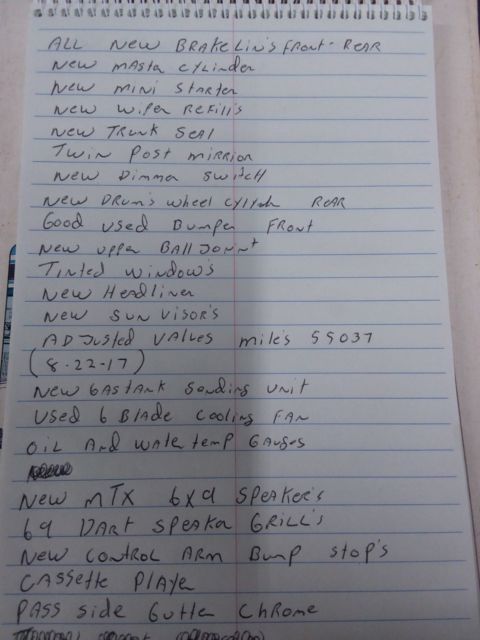 ALL NEW BRAKE LIN'S FRONT - REAR
NEW MASTA CYLINDER
NEW MINI STARTER
NEW WIPER REFILL'S
NEW TRUNK SEAL
TWIN POST MIRRIOR
NEW DIMMER SWITCH
NEW DRUM'S WHEEL CYLINDR REAR
GOOD USED BUMPER FRONT
NEW UPPER BALL JOINT
TINTED WINDOW'S
NEW HEADLINER
NEW SUN VISOR'S
ADJUSTED VALVES MILE'S 59037
(8-22-17)
NEW GASTANK SANDING UNIT
USED 6 BLADE COOLING FAN
OIL AND WATER TEMP GAUGES
NEW MTX 6X9 SPEAKER'S
69 DART SPEAKER GRILL'S
NEW CONTROL ARM BUMP STOP'S
CASSETTE PLAYER
PASS SIDE GUTTER CHROME